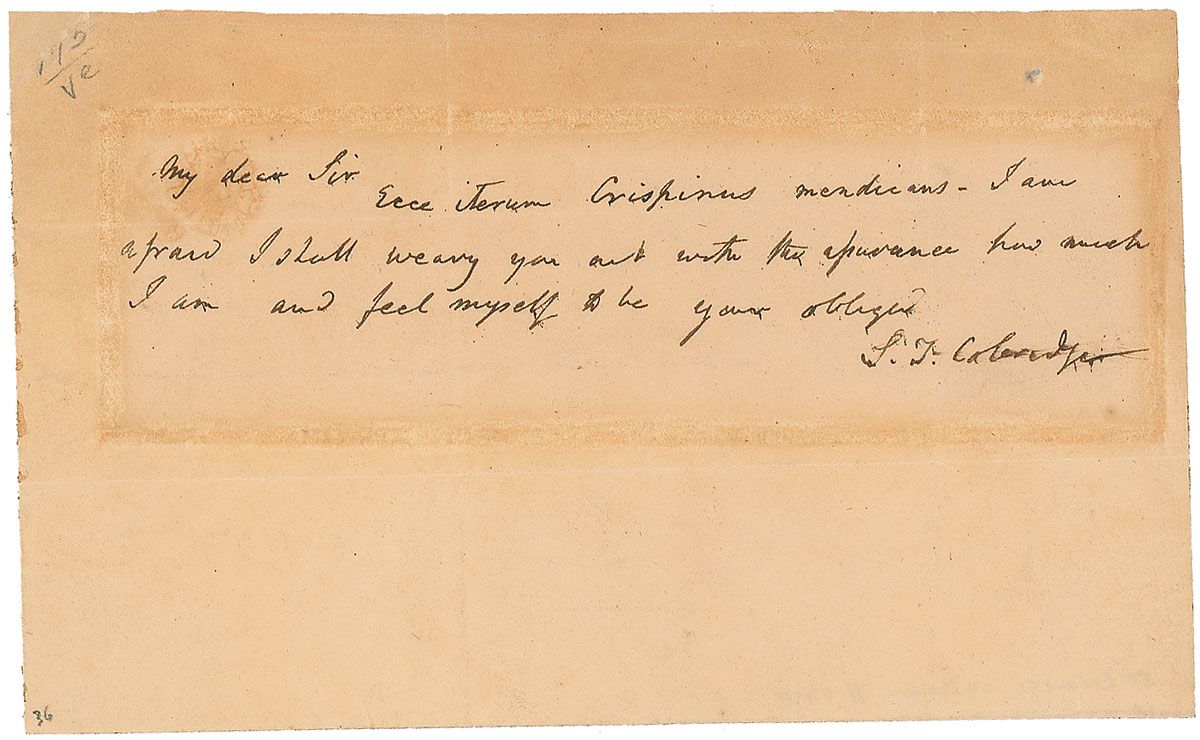 My dear Sir
Ecce iterum Crispinus mendicans - I am
afraid I shall weary you out with the assurance how much
I am and feel myself to be your obliged
S. T. Coleridge
36